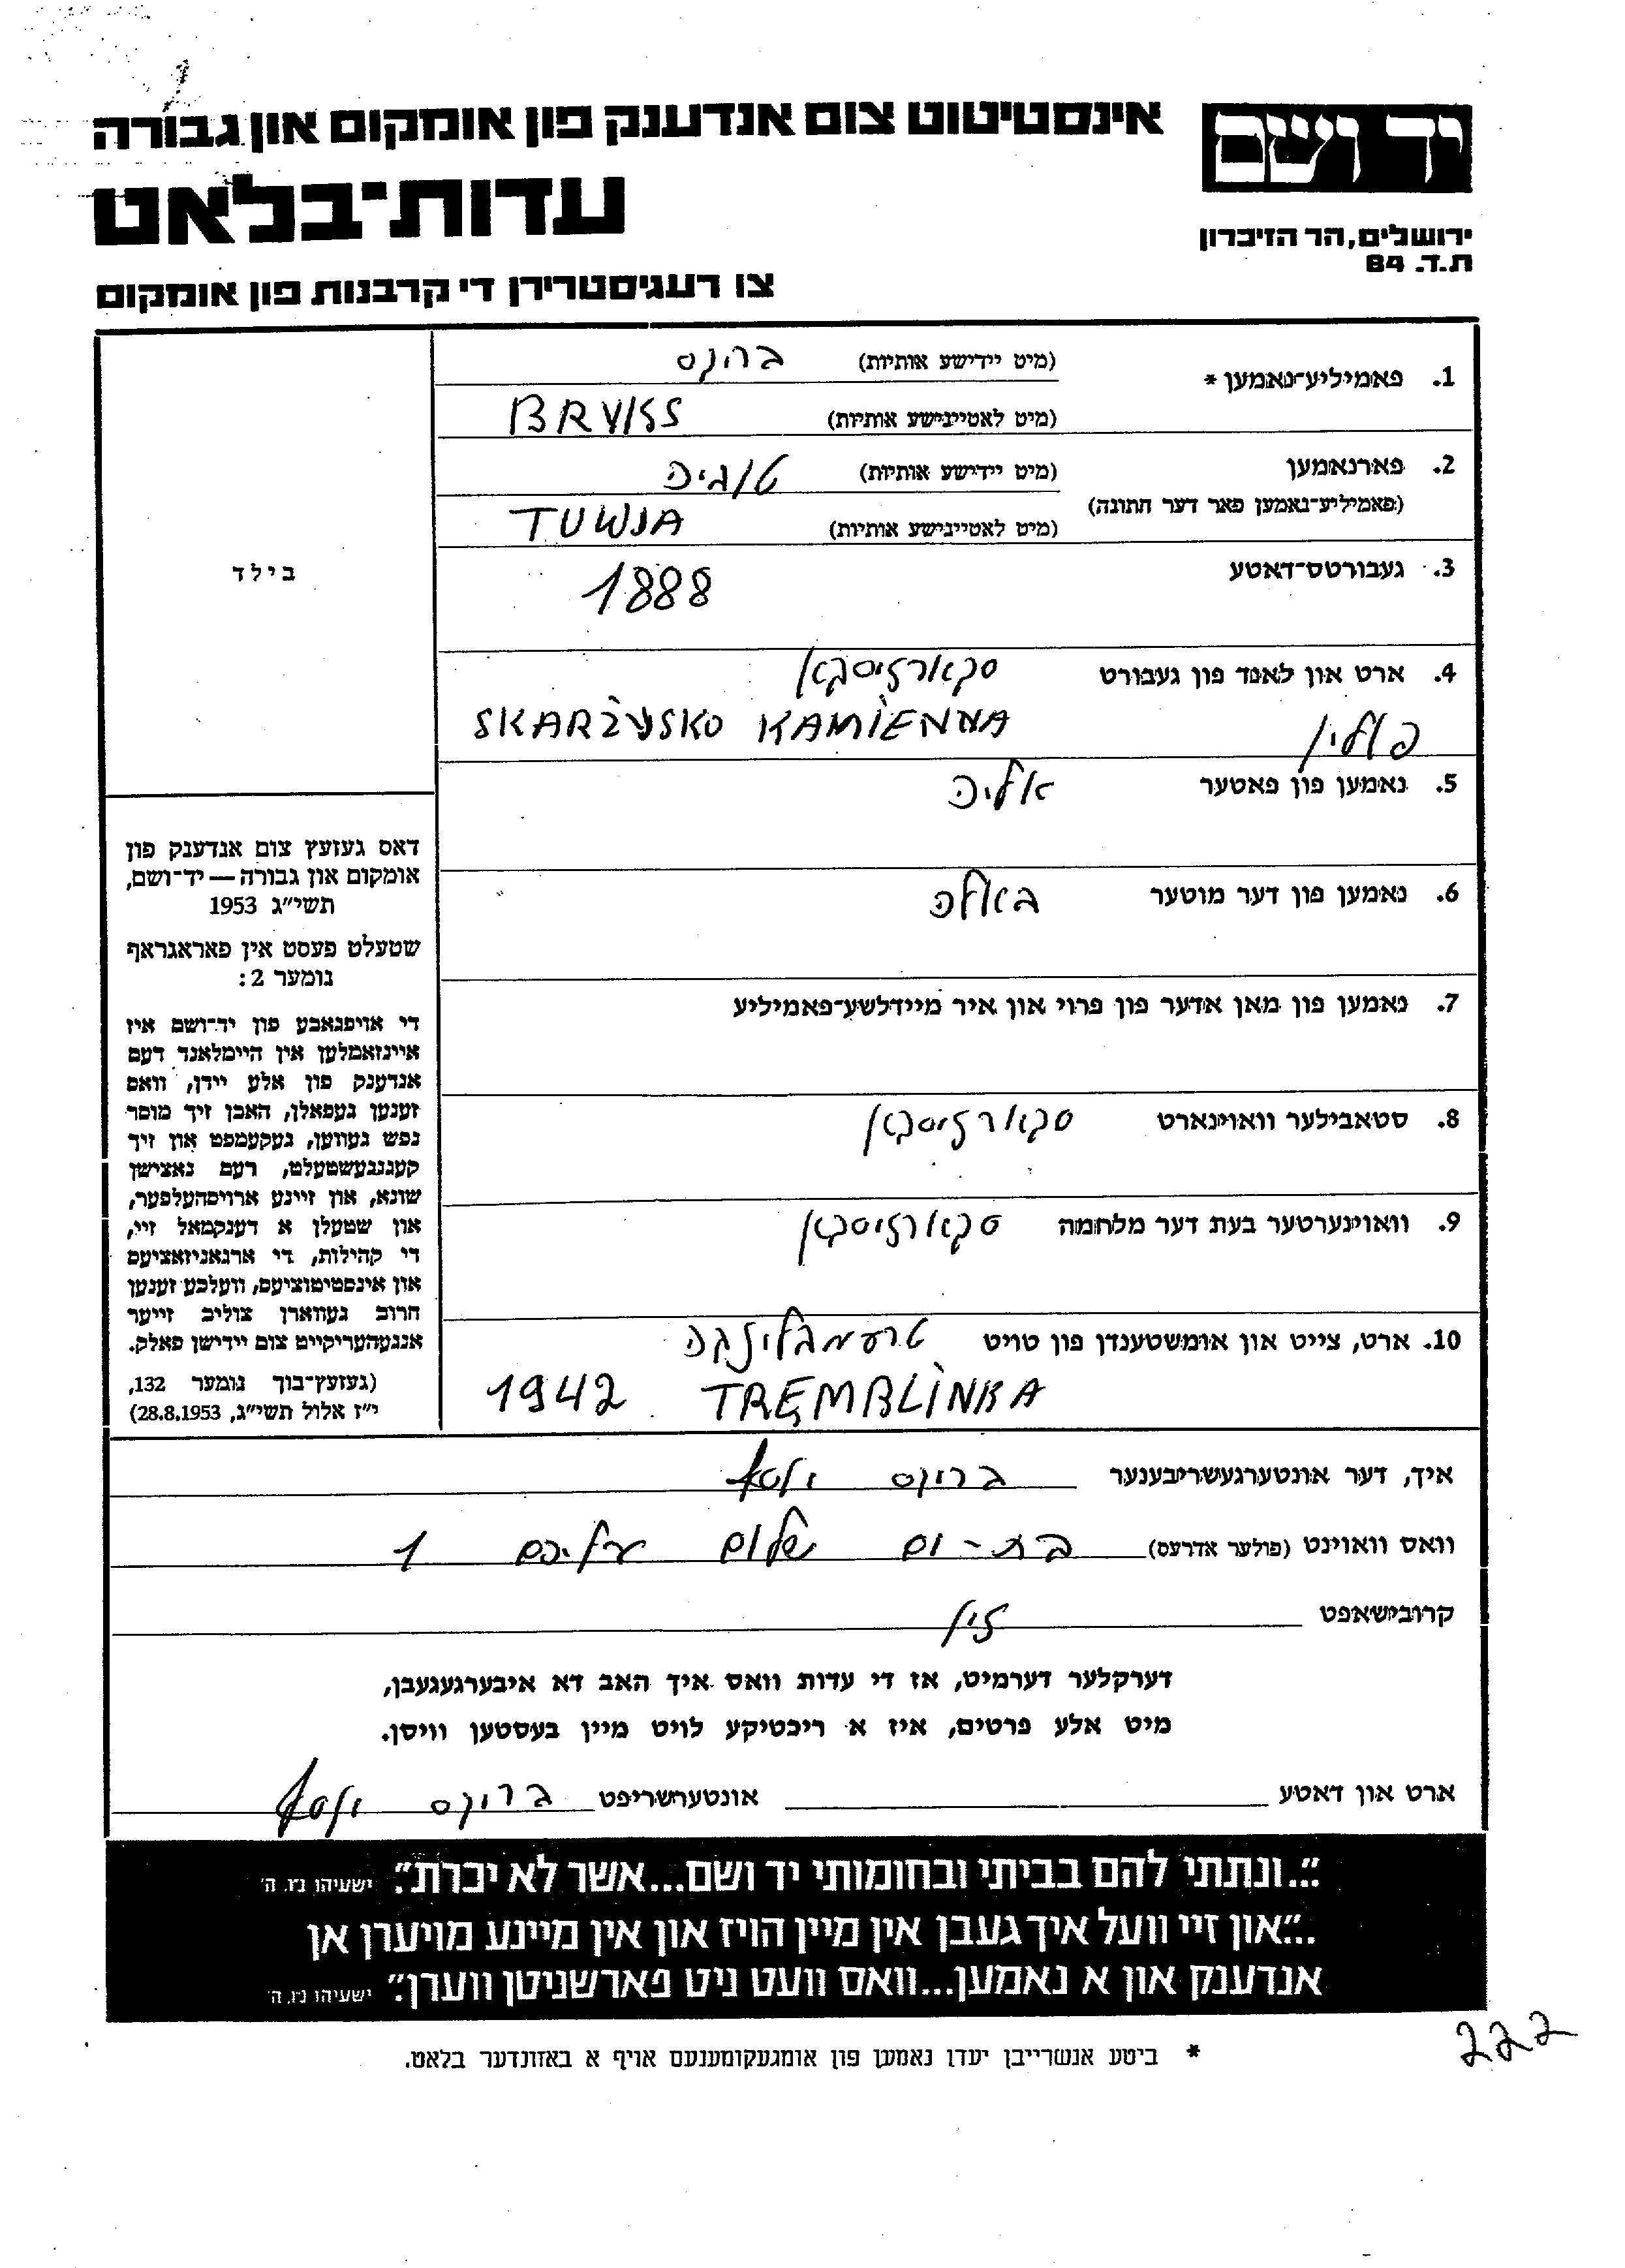 יד ושם
אינסטיטוט צום אנדענק פון אומקום און גבורה
עדות־בלאט
ירושלים, הר הזיכרון
ת.ד. 84
צו רעגיסטרירן די קרבנות פון אומקום
1. פאמיליע־נאמען *
(מיט יידישע אותיות) ברוקס
(מיט לאטיינישע אותיות) BRYKS
2. פארנאמען
(מיט יידישע אותיות) טוביה
(פאמיליע־נאמען פאר דער חתונה)
(מיט לאטיינישע אותיות) TUWJA
3. געבורטס־דאטע
1888
4. ארט און לאנד פון געבורט סקארזיסקאן
פולין SKARŻYSKO KAMIENNA
5. נאמען פון פאטער אליה
6. נאמען פון דער מוטער באלה
7. נאמען פון מאן אדער פון פרוי און איר מיידלשע־פאמיליע
8. סטאבילער וואוינארט סקארזיסקאן
9. וואוינערטער בעת דער מלחמה סקארזיסקאן
10. ארט, צייט און אומשטענדן פון טויט טרעמבלינקה
1942 TREMBLINKA
בילד
דאס געזעץ צום אנדענק פון
אומקום און גבורה — יד־ושם,
תשי״ג 1953
שטעלט פעסט אין פאראגראף
נומער 2:
די אויפגאבע פון יד־ושם איז
איינזאמלען אין היימלאנד דעם
אנדענק פון אלע יידן, וואס
זענען געפאלן, האבן זיך מוסר
נפש געווען, געקעמפט און זיך
קעגנגעשטעלט, דעם נאצישן
שונא, און זיינע ארויסהעלפער,
און שטעלן א דענקמאל זיי,
די קהילות, די ארגאניזאציעס
און אינסטיטוציעס, וועלכע זענען
חרוב געווארן צוליב זייער
אנגעהעריקייט צום יידישן פאלק.
(געזעץ־בוך נומער 132,
י״ז אלול תשי״ג, 28.8.1953)
איך, דער אונטערגעשריבענער ברוקס יוסף
וואס וואוינט (פולער אדרעס) בת-ים שלום עליכם 1
קרובישאפט זין
דערקלער דערמיט, אז די עדות וואס איך האב דא איבערגעגעבן,
מיט אלע פרטים, איז א ריכטיקע לויט מיין בעסטען וויסן.
ארט און דאטע אונטערשריפט ברוקס יוסף
״...ונתתי להם בביתי ובחומותי יד ושם...אשר לא יכרת״. ישעיהו נ״ו, ה׳
...״און זיי וועל איך געבן אין מיין הויז און אין מיינע מויערן אן
אנדענק און א נאמען...וואס וועט ניט פארשניטן ווערן״. ישעיהו נ״ו, ה׳
* ביטע אנשרייבן יעדן נאמען פון אומגעקומענעם אויף א באזונדער בלאט.
222